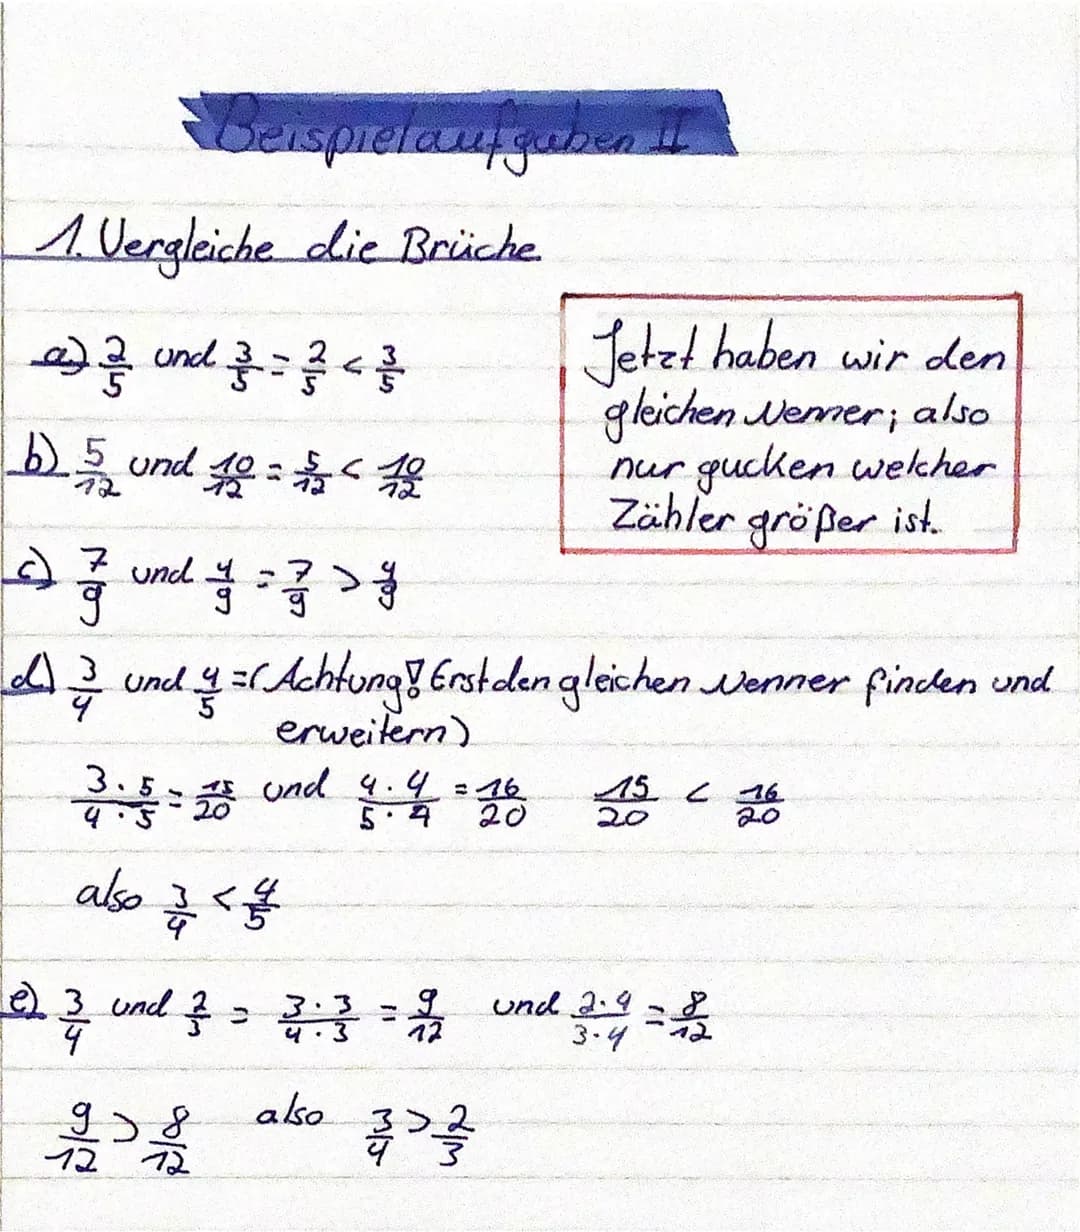 Beispielaufgaben II
1. Vergleiche die Brüche
a) 2/5 und 3/5 = 2/5 < 3/5
Jetzt haben wir den
gleichen Nenner; also
nur gucken welcher
Zähler größer ist.
b) 5/12 und 10/12 = 5/12 < 10/12
c) 7/9 und 4/9 = 7/9 > 4/9
d) 3/4 und 4/5 = (Achtung! Erst den gleichen Nenner finden und
erweitern)
3·5/4·5 = 15/20 und 4·4/5·4 = 16/20 15/20 < 16/20
also 3/4 < 4/5
e) 3/4 und 2/3 = 3·3/4·3 = 9/12 und 2·4/3·4 = 8/12
9/12 > 8/12 also 3/4 > 2/3